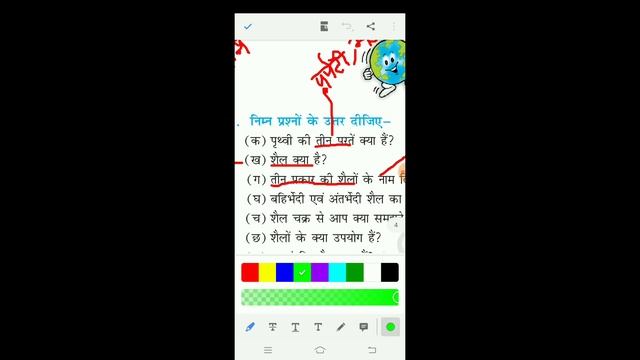 पर्पटी,
निम्न प्रश्नों के उत्तर दीजिए–
(क) पृथ्वी की तीन परतें क्या हैं?
(ख) शैल क्या है?
(ग) तीन प्रकार की शैलों के नाम
(घ) बहिर्भेदी एवं अंतर्भेदी शैल का
(च) शैल चक्र से आप क्या समझते
(छ) शैलों के क्या उपयोग हैं?
4